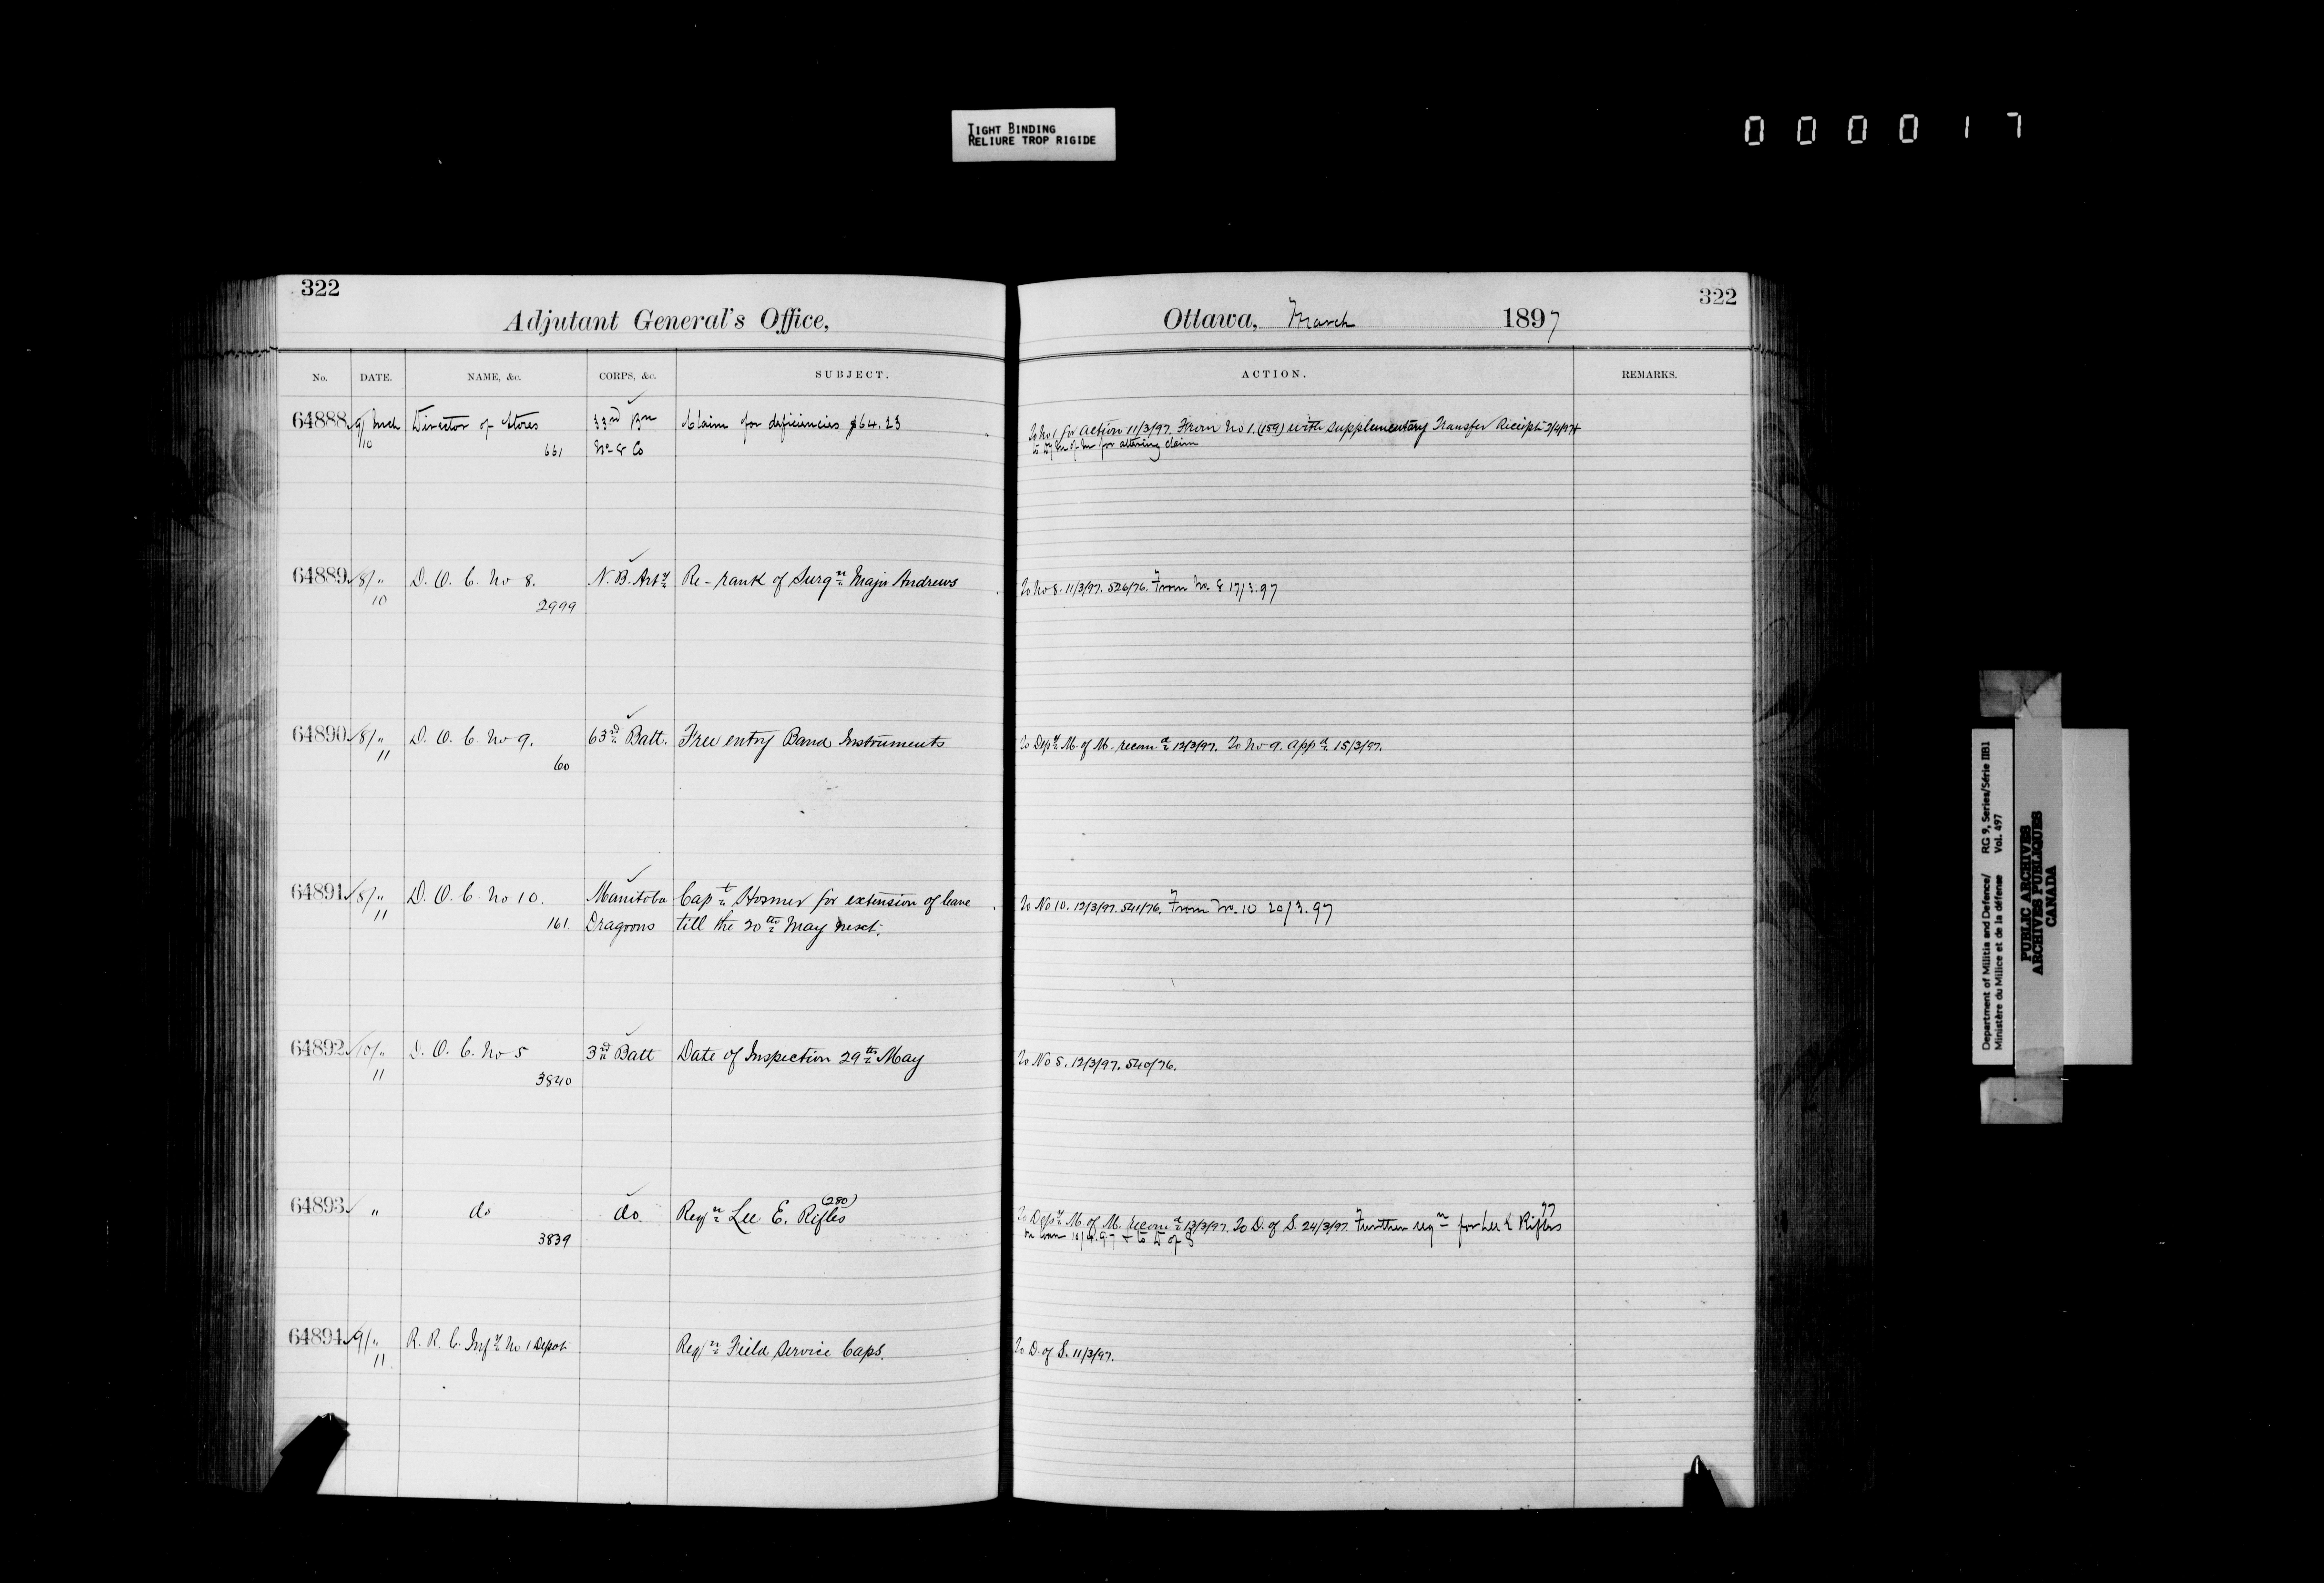 TIGHT BINDING
RELIURE TROP RIGIDE
000017
322
Adjutant General's Office,
No. DATE. NAME, &c. CORPS, &c. SUBJECT.
64888 9/ Mch Director of Stores 33rd Bn Claim for deficiencies $64.23
10 661 No 8 Co
64889 8/ " D. O. C. No 8. N. B. Arty Re-rank of Surgn Major Andrews
10 2999
64890 8/ " D. O. C. No 9. 63rd Batt. Free entry Band Instruments
11 60
64891 8/ " D. O. C. No 10. Manitoba Capt Hosmer for extension of leave
11 161. Dragoons till the 20th May next.
64892 10/ " D. O. C. No 5 3rd Batt Date of Inspection 29th May
11 3840
(280)
64893 " do do Reqn Lee E. Rifles
3839
64894 9/ " R. R. C. Infy No 1 Depot Reqn Field Service Caps.
11
322
Ottawa, March 1897
ACTION. REMARKS.
To No 1. for action 11/3/97. From No 1. (159) with supplementary Transfer Receipt
for altering claim
To No 8. 11/3/97. 526/76. From No. 8 17/3.97
To Depy M. of M. recomd 12/3/97. To No 9. appd 15/3/97.
To No 10. 12/3/97. 541/76. From No. 10 20/3.97
To No 5. 12/3/97. 540/76.
77
To Depy M. of M. recomd 13/3/97. To D. of S. 24/3/97. Further reqn for Lee E Rifles
on loan 10/4.97 & to D of S
To D. of S. 11/3/97.
Department of Militia and Defence/ RG 9, Series/Série IIB1
Ministère du Milice et de la défense Vol. 497
PUBLIC ARCHIVES
ARCHIVES PUBLIQUES
CANADA